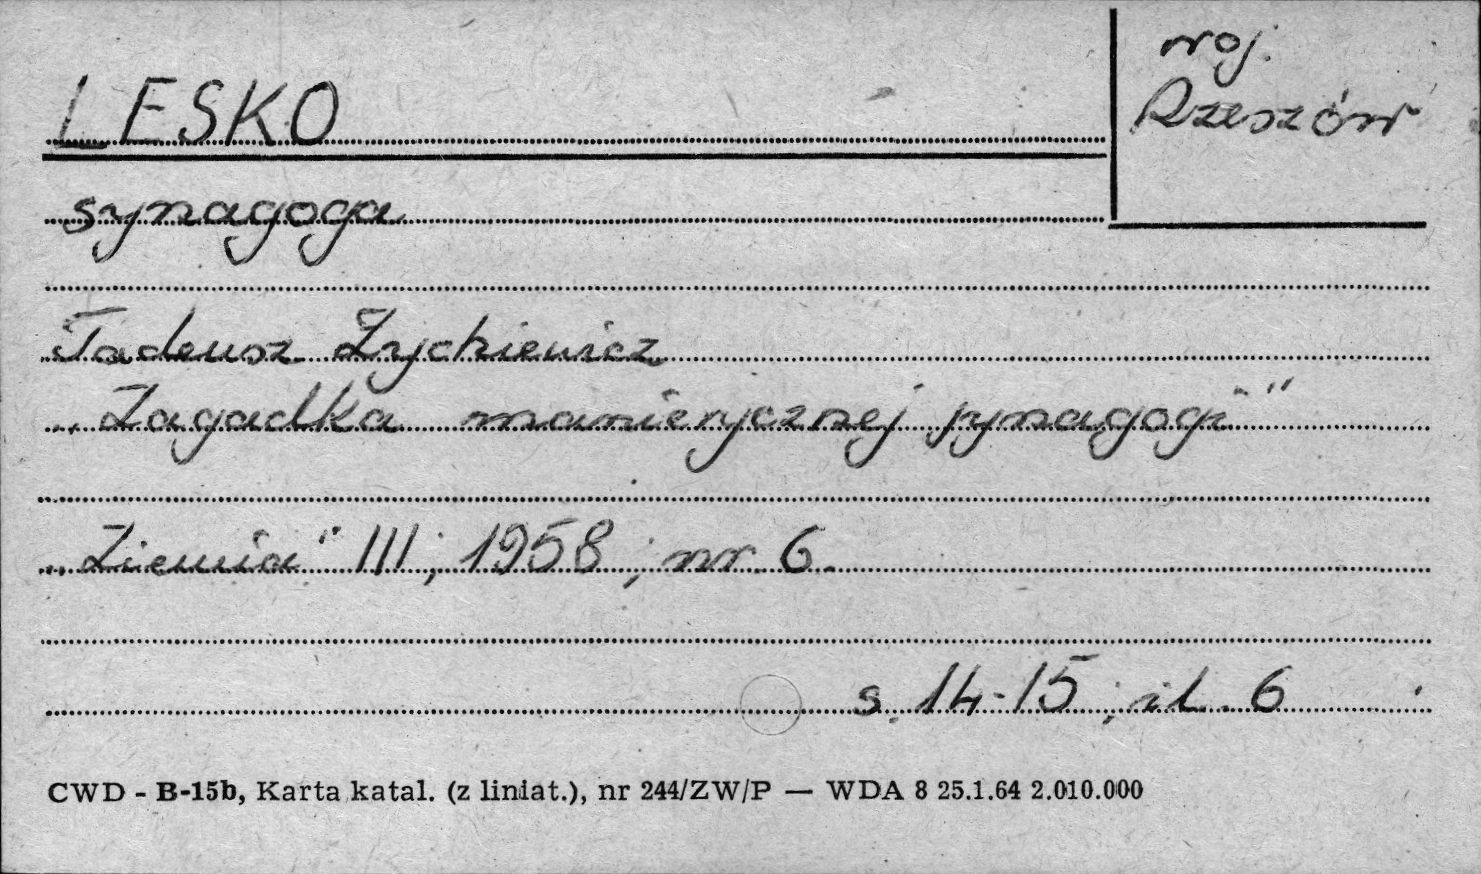 LESKO
woj.
Rzeszów
synagoga
Tadeusz Żychiewicz
„Zagadka manierycznej synagogi"
„Ziemia" III; 1958; nr. 6.
s. 14-15; il. 6
CWD - B-15b, Karta katal. (z liniat.), nr 244/ZW/P — WDA 8 25.1.64 2.010.000